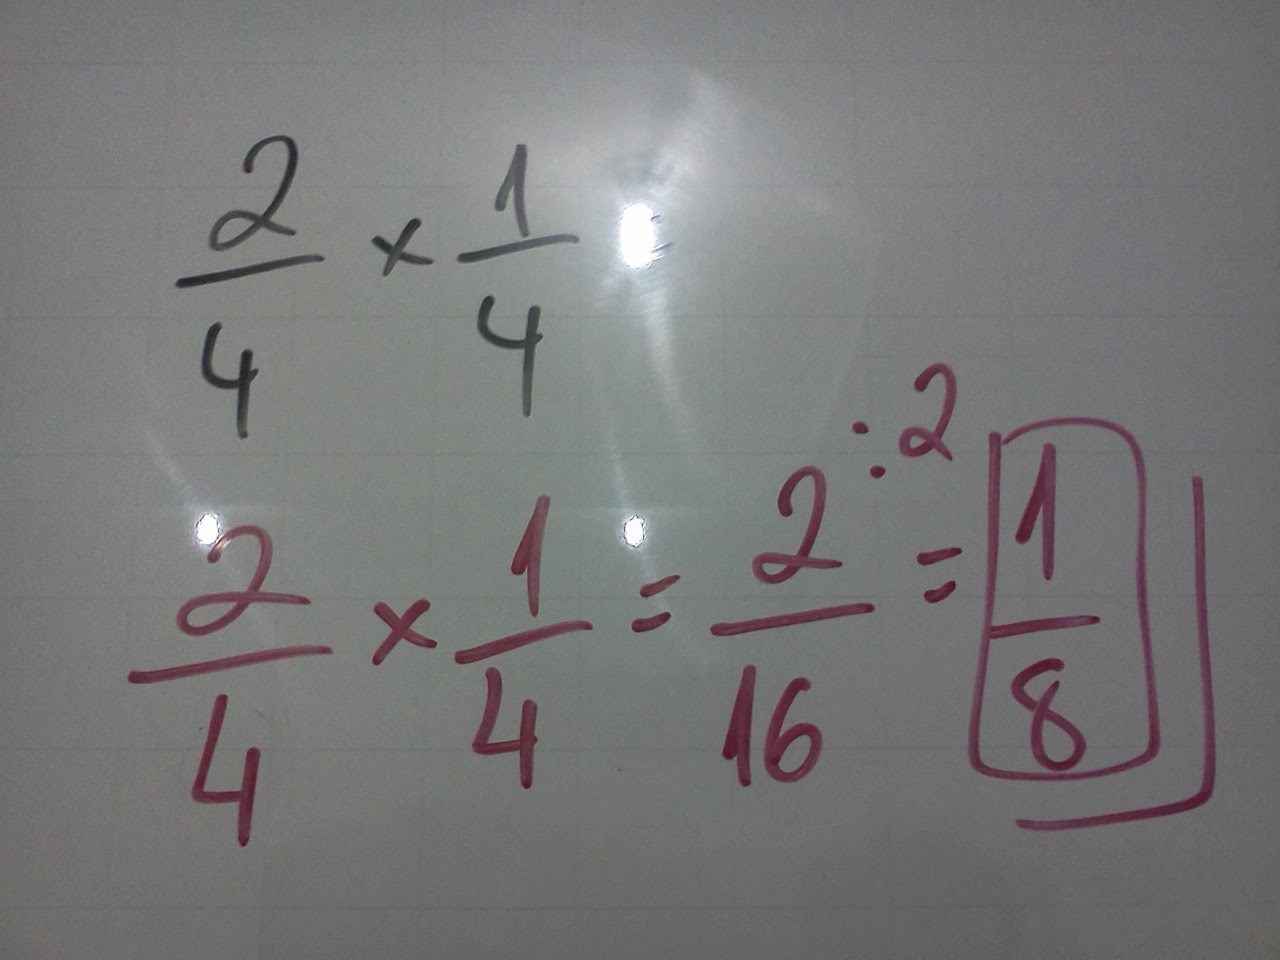 2/4 × 1/4 =
2/4 × 1/4 = 2/16 :2 = 1/8